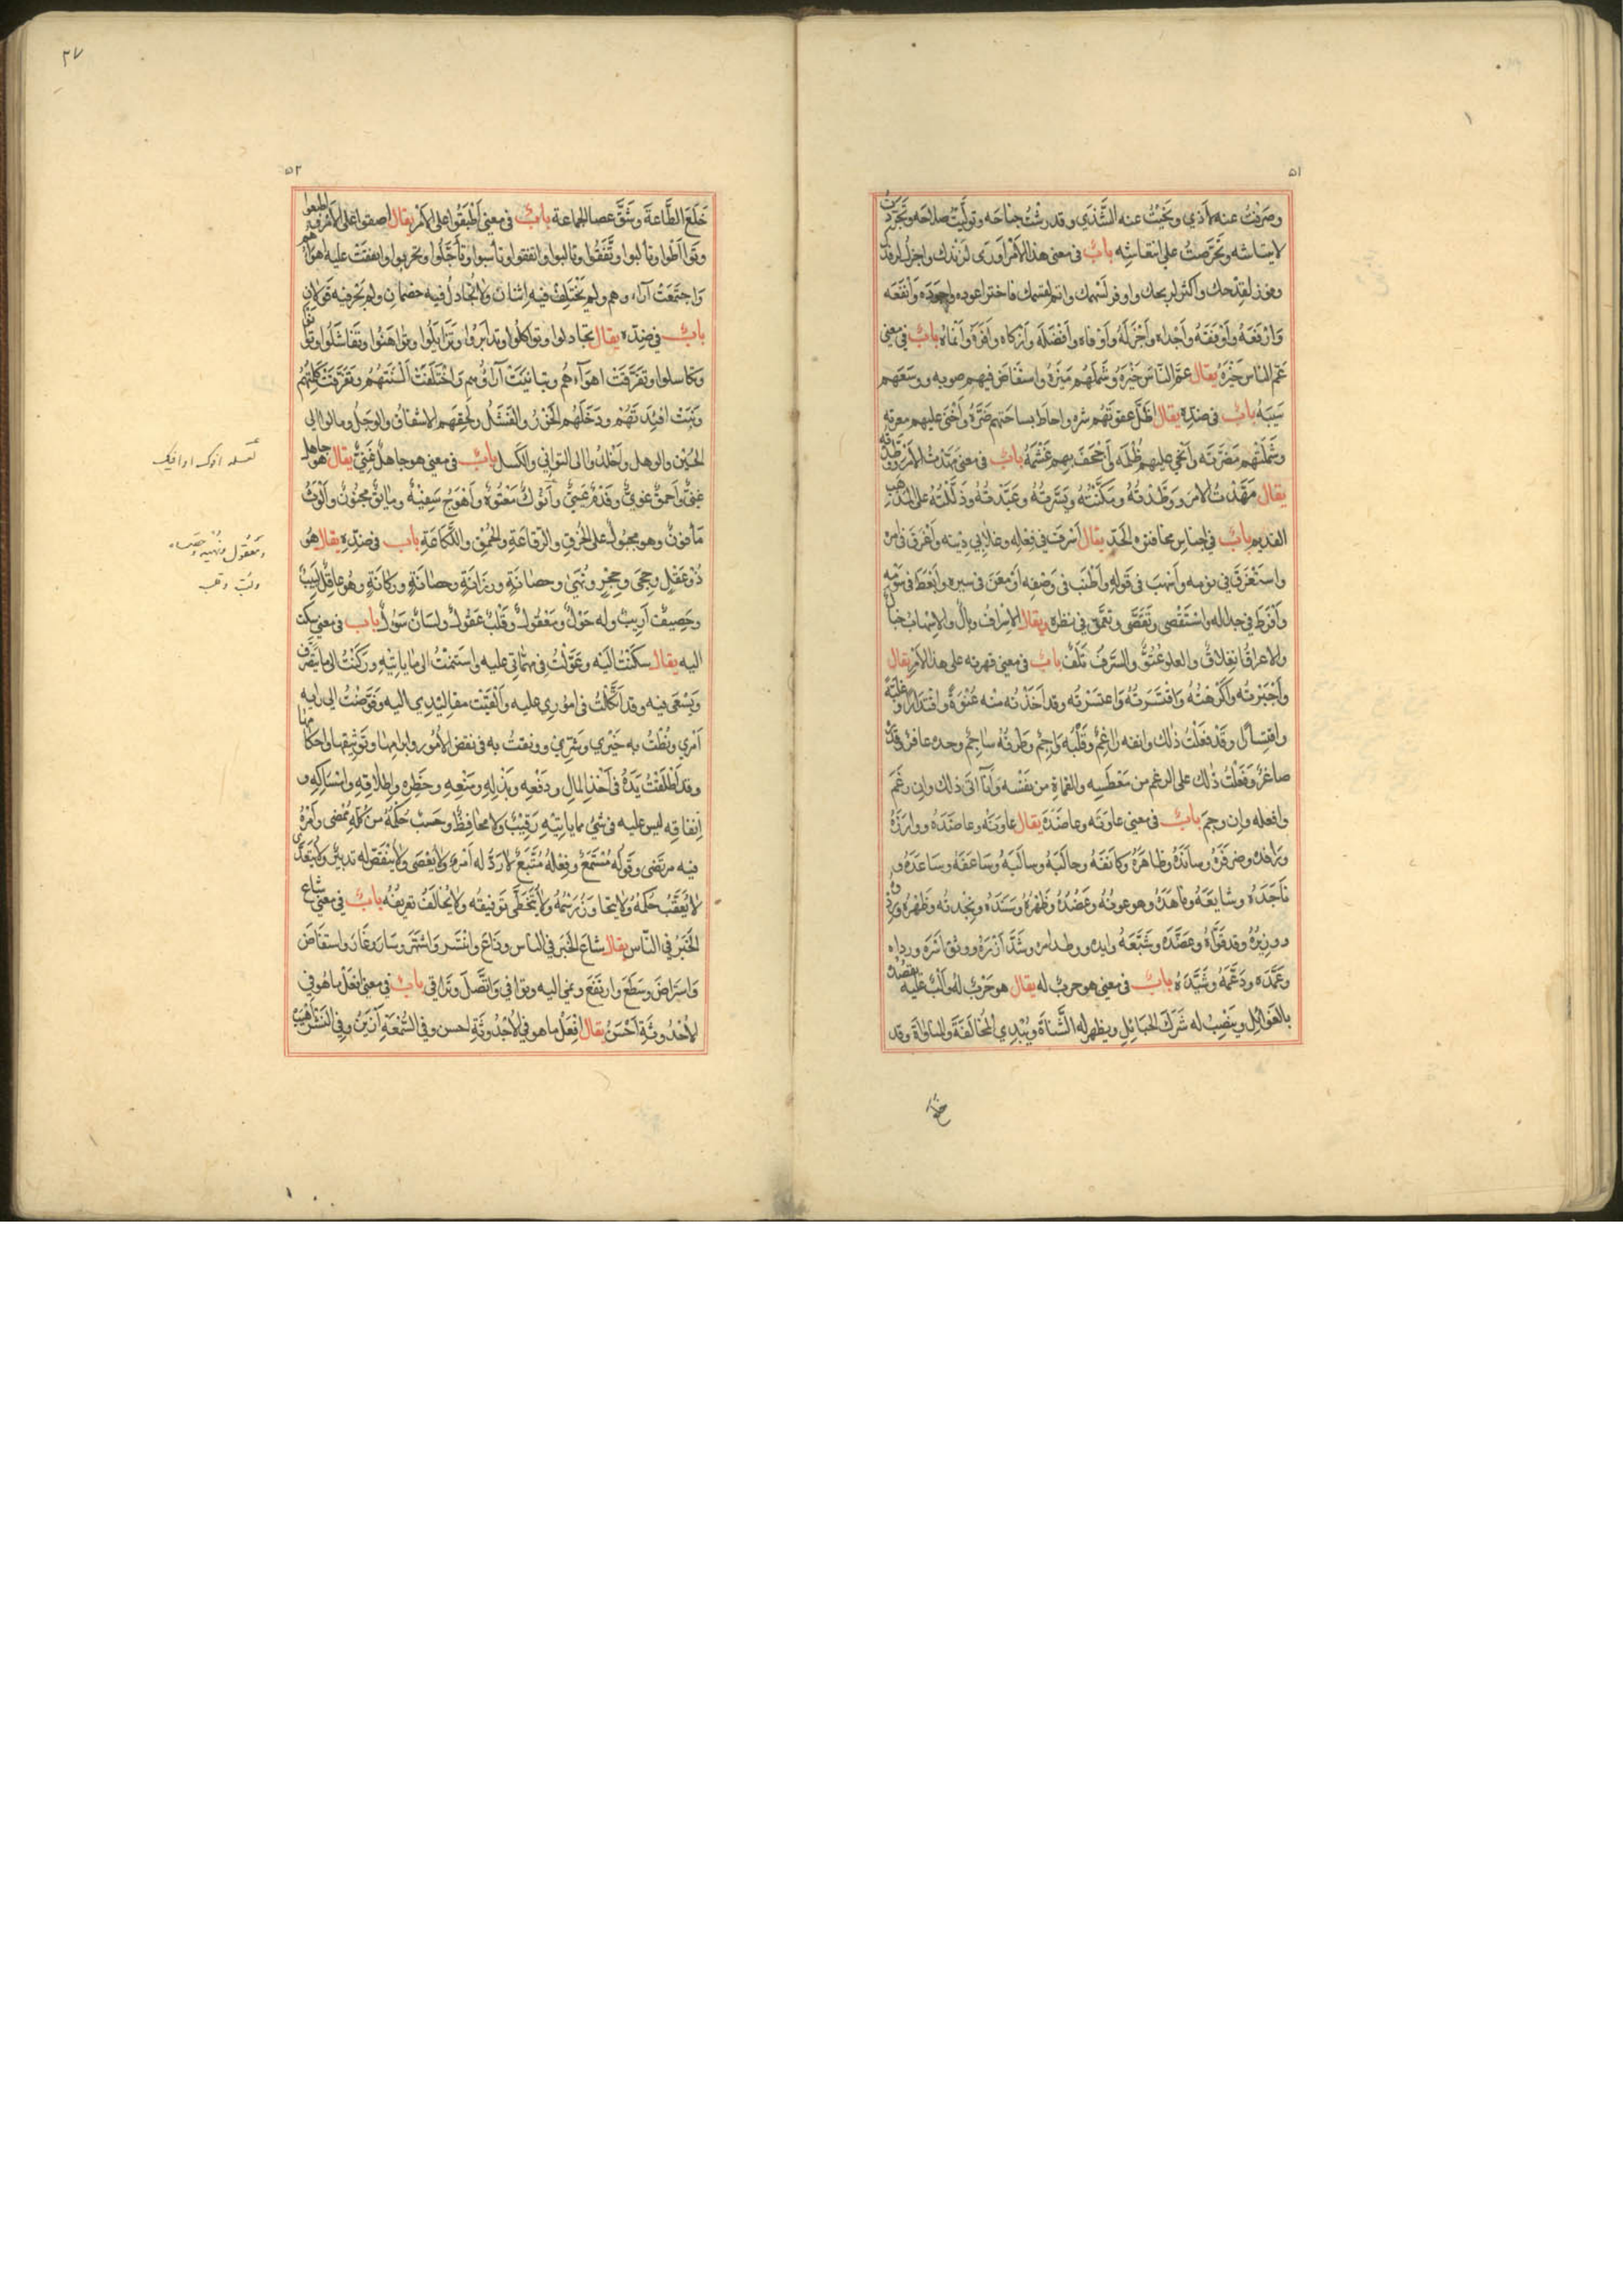 ٥١
وصرفت عنه الأذي ونحيت عنه الشذي وقد رشت جناحه وتوليت صلاحه وتجردت
لانتياشه وتحرصت على انتعاشه باب في معنى هذا الأمر أوري لزندك واجزل لرفدك
وفوز لقدحك وأكثر لربحك واوفر لسهمك واتم لقسمك فاختر اعوده واجوده وأنفعه
وأرفعه وأوفقه وأجداه وأجزله وأوفاه وأفضله وأزكاه وأفره وأنماه باب في معنى
عم الناس خيره يقال عم الناس خيره وشملهم ميره واستفاض فيهم صوبه ووسعهم
سيبه باب في ضده يقال أظل عقوتهم شره واحاط بساحتهم ضره وأخنى عليهم معرته
وشملتهم مضرته وانحي عليهم ظلمه وأجحف بهم غشمه باب في معنى مهدت الأمر ووطدته
يقال مهدت الامر ووطدته ومكنته ويسرته وعبدته وذللته على المذهب
القديم باب في اجناس مجاوزة الحد يقال أسرف في فعله وغلا في دينه وأغرق في امر
واستغرق في نومه وأسهب في قوله وأطنب في وصفه أو معن في سيره وأبعط في سومه
وأفرط في جداله واستقصى وتقصى وتعمق في نظره ويقال الإسراف وبال والاسهاب خبال
والاغراق انغلاق والغلو عتو والسرف تلف باب في معنى قهرته على هذا الأمر يقال
وأجبرته وأكرهته واقتسرته واعتسرته وقد اخذته منه عنوة واقتدارا وغلبة
واقتسارا وقد فعلت ذلك وانفه راغم وقلبه واجم وطرفه ساجم وحده عافر وقده
صاغر وفعلت ذلك على الرغم من معطسه والقماة من نفسه وأنا آتى ذلك وان رغم
وافعله وإن وجم باب في معنى عاونه وعاضده يقال عاونه وعاضده ووازره
ورافده وضافره وسانده وظاهره وكانفه وحالبه وسالبه وساعفه وساعده و
ناجده وشايعه وناهده وهو عونه وعضده وظهره وسنده ونجدته وظهره
ووزيره وقد قواه وعضده وشيعه وايده ووطد امره وشد أزره ووثق اسره
وعمده ودعمه وشيده باب في معنى هو حرب له يقال هو حرب له والب عليه يقصده
بالغوائل وينصب له شرك الحبائل ويظهر له الشناة ويبدي المخالفة والمناواة وقد
خلع
٣٧
٥٢
خلع الطاعة وشق عصا الجماعة باب في معنى أطبقوا على الأمر يقال اصفقوا على الأمر واطبقوا فيه
وتواطوا وتألبوا وتفقوا وتالبوا واتفقوا وتأسبوا وتأجلوا وتحزبوا واتفقت عليه اهواؤهم
واجتمعت آراءهم ولم يختلف فيه اثنان ولا تجادل فيه خصمان ولم يجر فيه قولان
باب في ضده يقال تجادلوا وتواكلوا وتدابروا وتزايلوا وتواهنوا وتفاشلوا
وتكاسلوا وتفرقت اهواءهم وتباينت آراؤهم واختلفت ألسنتهم وتفرقت كلمتهم
ونبت افئدتهم ودخلهم الخور والفشل ولحقهم الاشفاق والوجل ومالوا الى
الجبن والوهل وأخلدوا الى التواني والكسل باب في معنى هو جاهل غبي يقال هو جاهل
غبي وأحمق غوي وفدم عيي وأنوك معتوه وأهوج سفيه ومائق مجنون وألوث
مأفون وهو مجبول على الخرق والرقاعة والحمق واللكاعة باب في ضده يقال هو
ذو عقل وحجى وحجر ونهى وحصافة ورزانة وحصانة وركانة وهو عاقل لبيب
وحصيف أريب وله حول ومعقول وقلب عقول ولسان سؤل باب في معنى سكت
اليه يقال سكنت اليه وعولت في مهماتي عليه واستمنت الى ما ياتيه وركنت الى ما يتصرف
ويسعى فيه وقد اتكلت في اموري عليه وألقيت مقاليدي اليه وفوضت الى رايه
أمري ونطت به خيري وشري ووثقت به في نقض الأمور وابرامها وتوثيقها واحكامها
وقد أطلقت يده في أخذ المال ودفعه وبذله ومنعه وحظره وإطلاقه وامساكه و
انفاقه ليس عليه في شيء مما ياتيه رقيب ولا محافظ وحسب حكمه من كله ممضى وأمره
فيه مرتضى وقوله مستمع وفعله متبع لا رد له أمر ولا يعصى ولا ينقض له تدبير ولا يتعدى
لا يعقب حكمه ولا يتجاوز رسمه ولا يتخطى توفيقه ولا يخالف تعريفه باب في معنى شاع
الخبر في الناس يقال شاع الخبر في الناس وذاع وانتشر واشتهر وسار واستفاض
واستراض وسطع وارتفع ونمي اليه وتوافي واتصل وتراقى باب في معنى افعل ما هو في
الأحدوثة احسن يقال افعل ما هو في الأحدوثة احسن وفي السمعة أزين وفي النشر أطيب